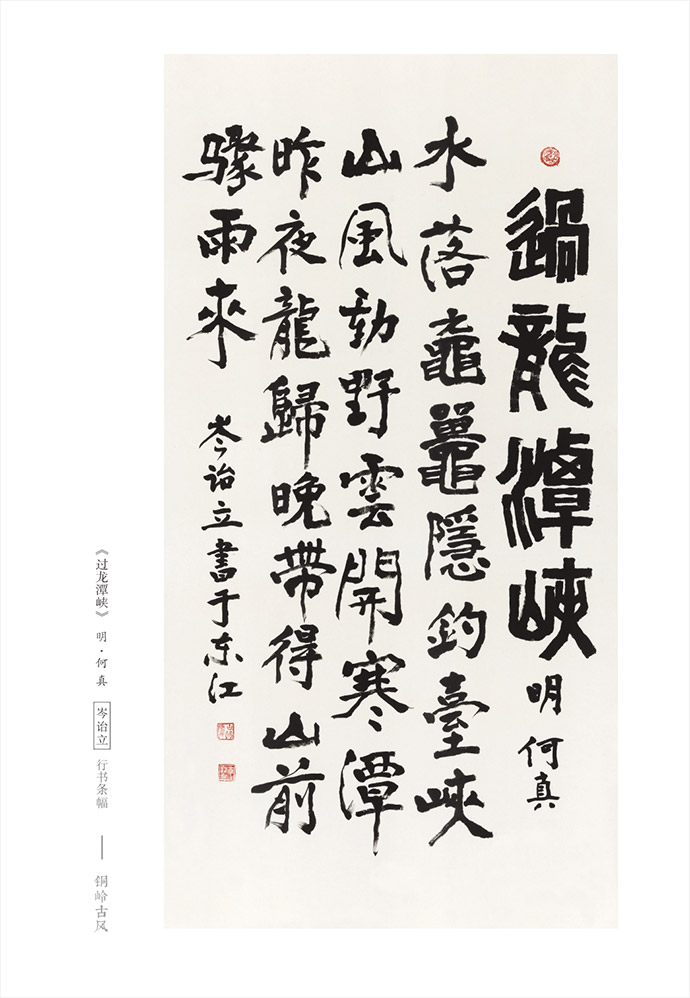 過龍潭峽 明 何真
水落黿鼉隱釣臺峽
山風動野雲開寒潭
昨夜龍歸晚帶得山前
骤雨來 岑诒立書于东江
《过龙潭峡》 明·何真 岑诒立 行书条幅 —— 铜岭古风